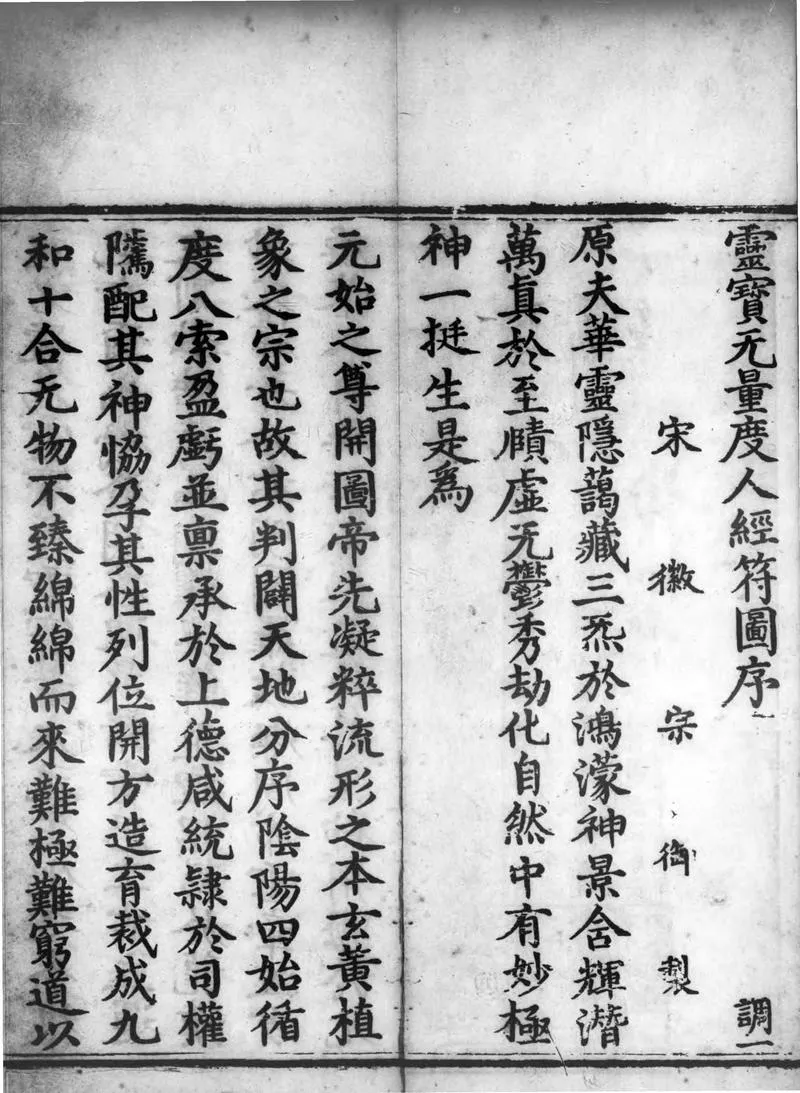 靈寶无量度人經符圖序 調一
宋徽宗御製
原夫華靈隱藹藏三炁於鴻濛神景含輝潛
萬真於至賾虛无鬱秀劫化自然中有妙極
神一挺生是為
元始之尊開圖帝先凝粹流形之本玄黃植
象之宗也故其判闢天地分序陰陽四始循
度八索盈虧並禀承於上德咸統隷於司權
隲配其神恊孕其性列位開方造育裁成九
和十合无物不臻綿綿而來難極難窮道以